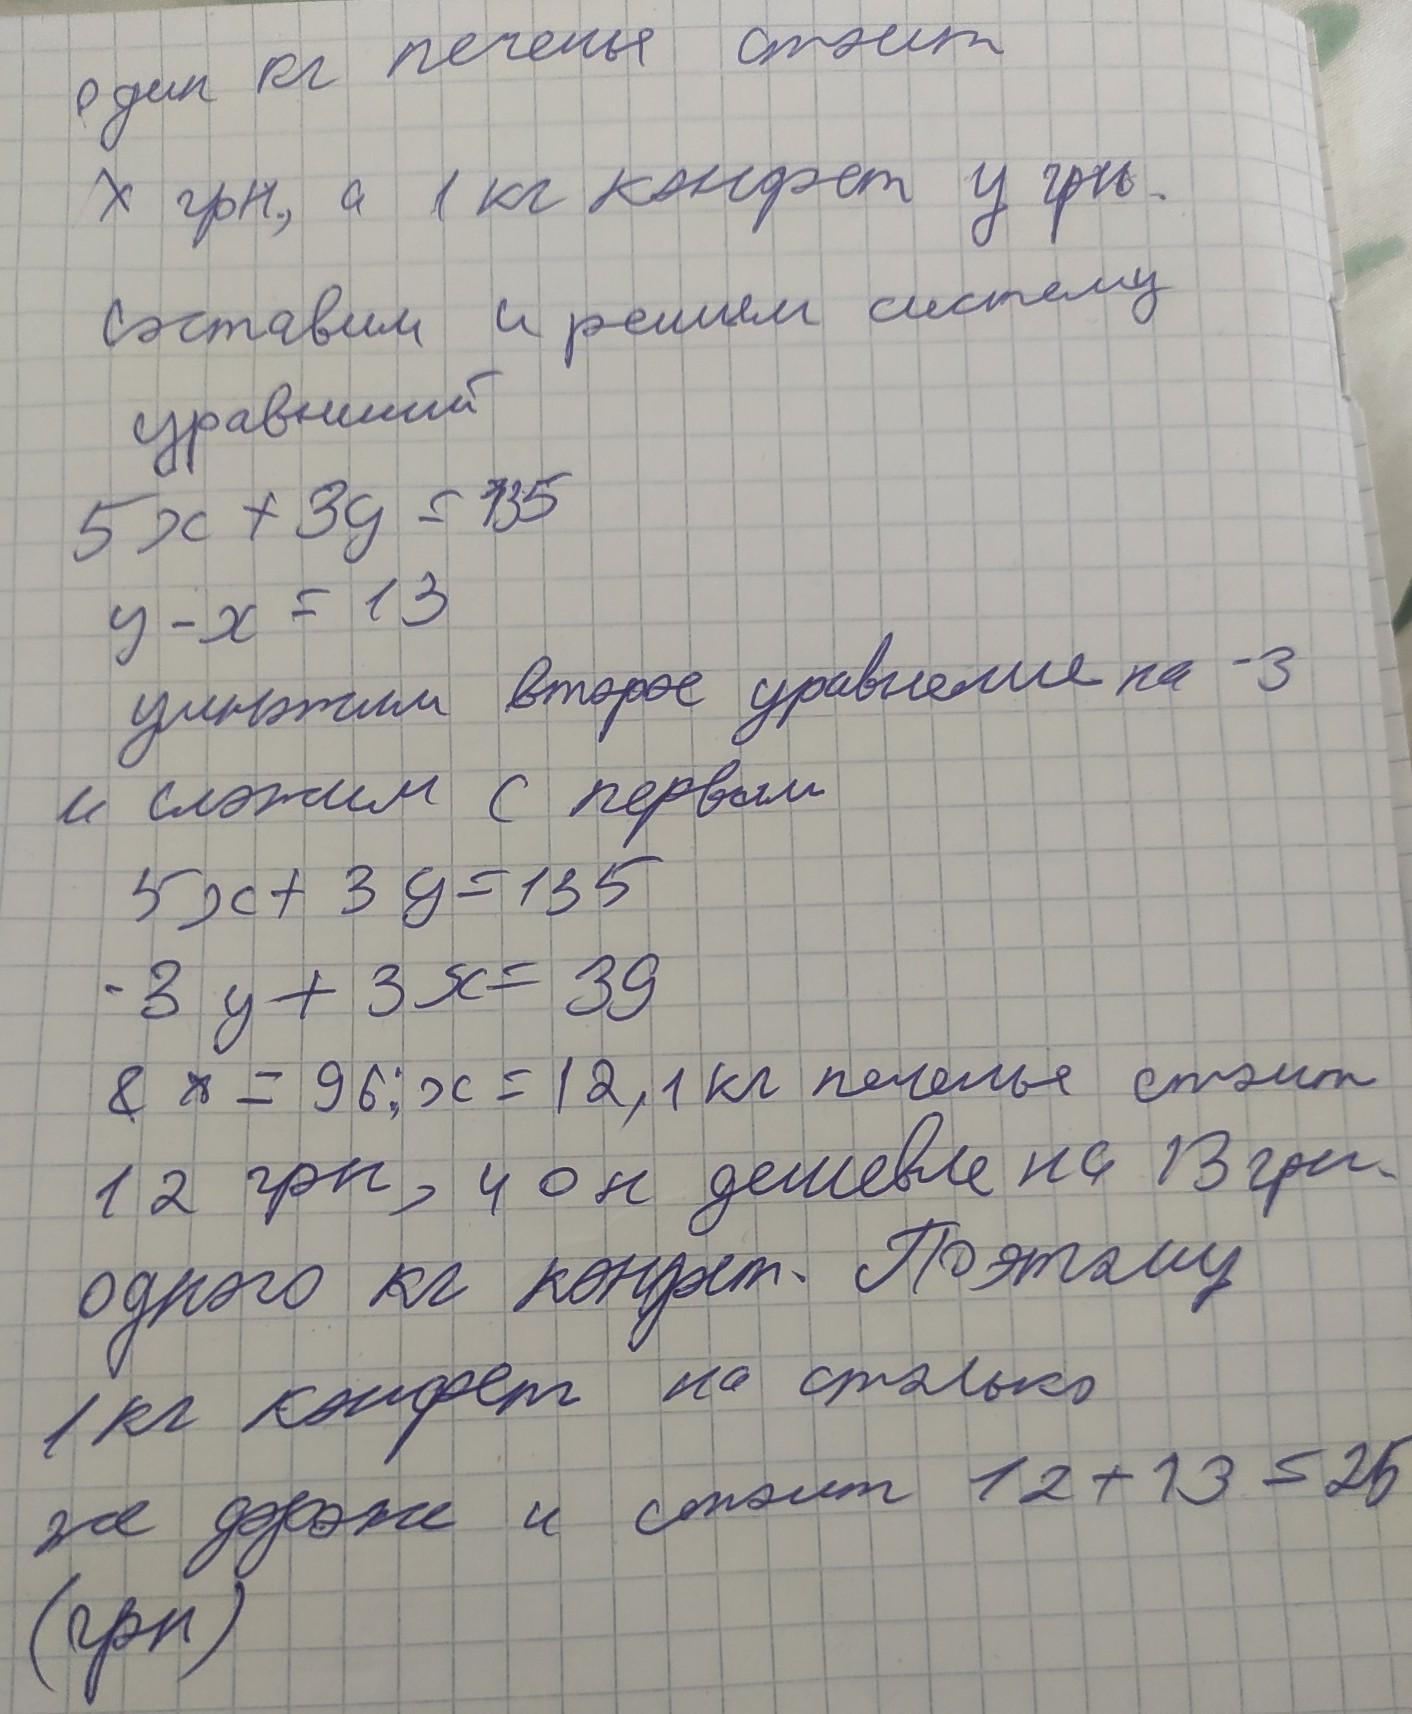 один кг печенье стоит
X грн., а 1 кг конфет y грн.
составим и решим систему
уравнений
5x + 3y = 135
y - x = 13
умножим второе уравнение на -3
и сложим с первым
5x + 3y = 135
-3y + 3x = 39
8x = 96; x = 12, 1 кг печенье стоит
12 грн, и он дешевле на 13 грн.
одного кг конфет. Поэтому
1 кг конфет на столько
же дороже и стоит 12 + 13 = 25
(грн)